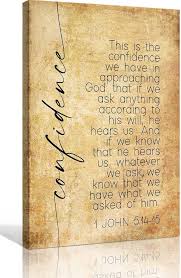 confidence
This is the
confidence
we have in
approaching
God: that if we
ask anything
according to
his will, he
hears us. And
if we know that
he hears us,
whatever
we ask, we
know that we
have what we
asked of him.
1 JOHN 5:14-15